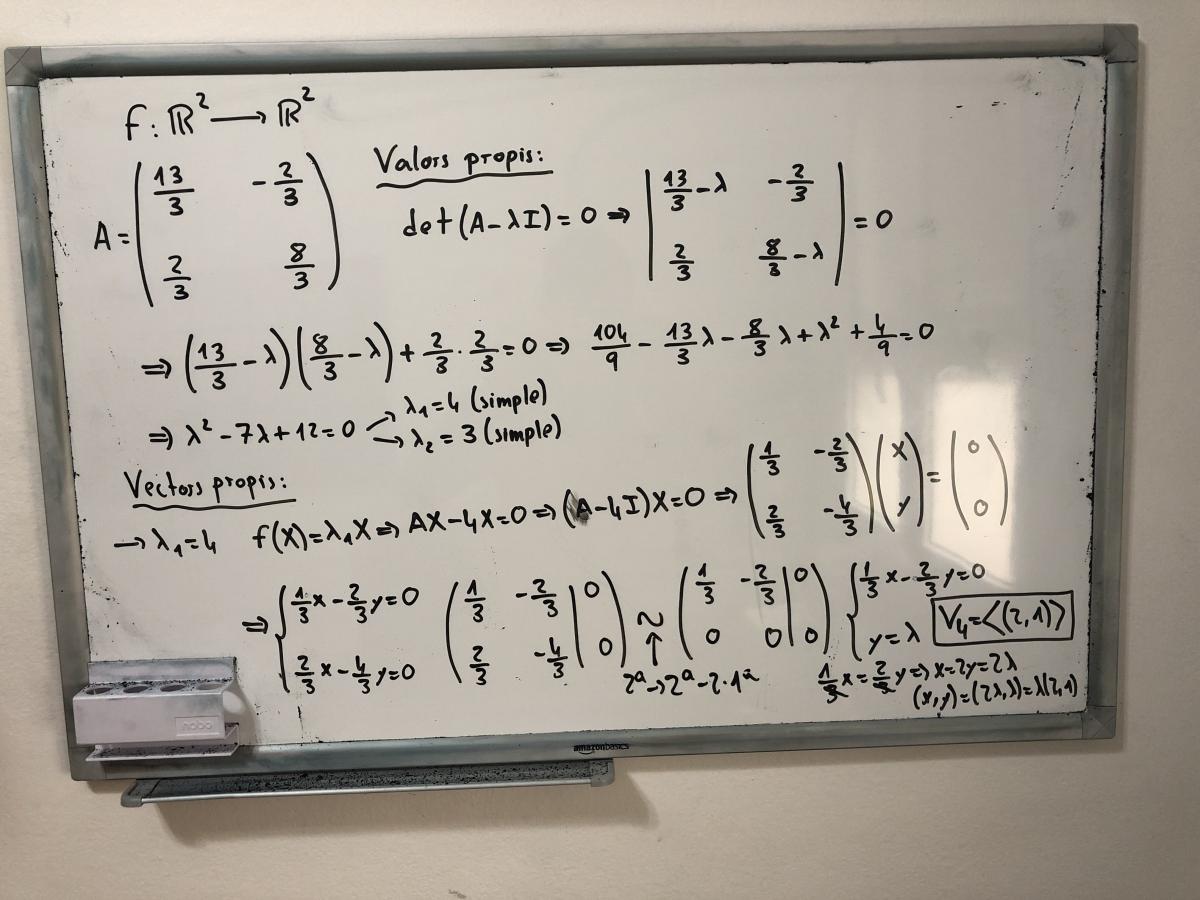 f: ℝ² → ℝ²
A = ( 13/3 -2/3 ; 2/3 8/3 )
Valors propis:
det(A-λI) = 0 ⇒ | 13/3-λ -2/3 ; 2/3 8/3-λ | = 0
⇒ (13/3 - λ)(8/3 - λ) + 2/3 · 2/3 = 0 ⇒ 104/9 - 13/3 λ - 8/3 λ + λ² + 4/9 = 0
⇒ λ² - 7λ + 12 = 0
λ₁ = 4 (simple)
λ₂ = 3 (simple)
Vectors propis:
→ λ₁ = 4 f(X) = λ₁X ⇒ AX - 4X = 0 ⇒ (A - 4I)X = 0 ⇒ ( 1/3 -2/3 ; 2/3 -4/3 ) ( x ; y ) = ( 0 ; 0 )
⇒ { 1/3 x - 2/3 y = 0 ; 2/3 x - 4/3 y = 0 ( 1/3 -2/3 | 0 ; 2/3 -4/3 | 0 ) ~ ( 1/3 -2/3 | 0 ; 0 0 | 0 ) { 1/3 x - 2/3 y = 0 ; y = λ
V₄ = <(2,1)>
↑
2ª → 2ª - 2·1ª
1/3 x = 2/3 y ⇒ x = 2y = 2λ
(x,y) = (2λ,λ) = λ(2,1)
nobo
amazonbasics